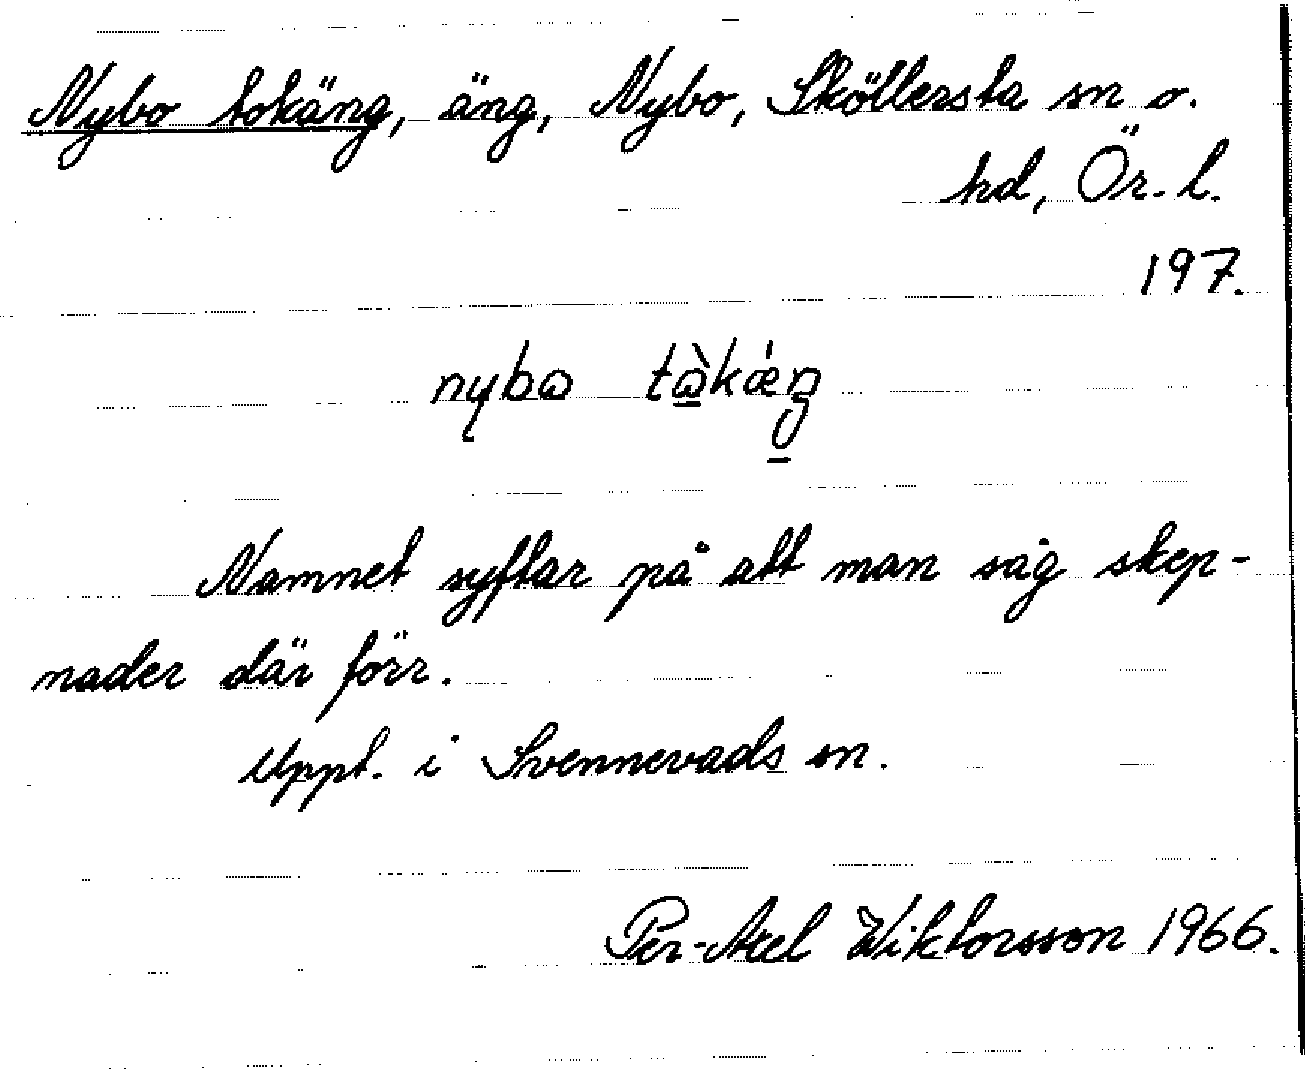 Nybo tokäng, äng, Nybo, Sköllersta sn o.
hd, Ör. l.
197.
nybo tòkǽŋ
Namnet syftar på att man såg skep-
nader där förr.
Uppt. i Svennevads sn.
Per-Axel Wiktorsson 1966.